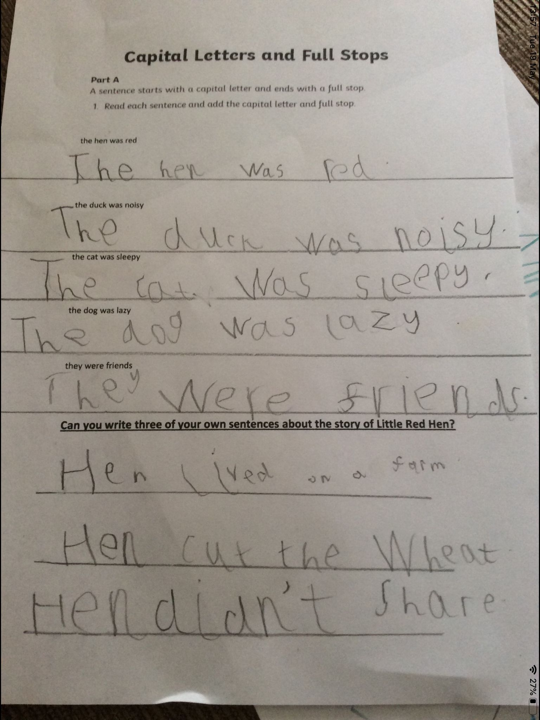 Capital Letters and Full Stops
Part A
A sentence starts with a capital letter and ends with a full stop.
1 Read each sentence and add the capital letter and full stop
the hen was red
The hen was red.
the duck was noisy
The duck was noisy.
the cat was sleepy
The cat. Was sleepy.
the dog was lazy
The dog was lazy
they were friends
They Were friends.
Can you write three of your own sentences about the story of Little Red Hen?
Hen lived on a farm
Hen cut the Wheat
Hen didn't Share.
27%